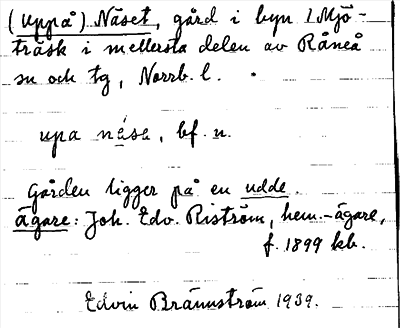 (Uppå) Näset, gård i byn 1 Mjö-
träsk i mellersta delen av Råneå
sn och tg, Norrb. l.
upa nèse, bf. n.
Gården ligger på en udde.
Ägare: Joh. Edv. Riström, hem.-ägare,
f. 1899 kb.
Edvin Brännström 1939.